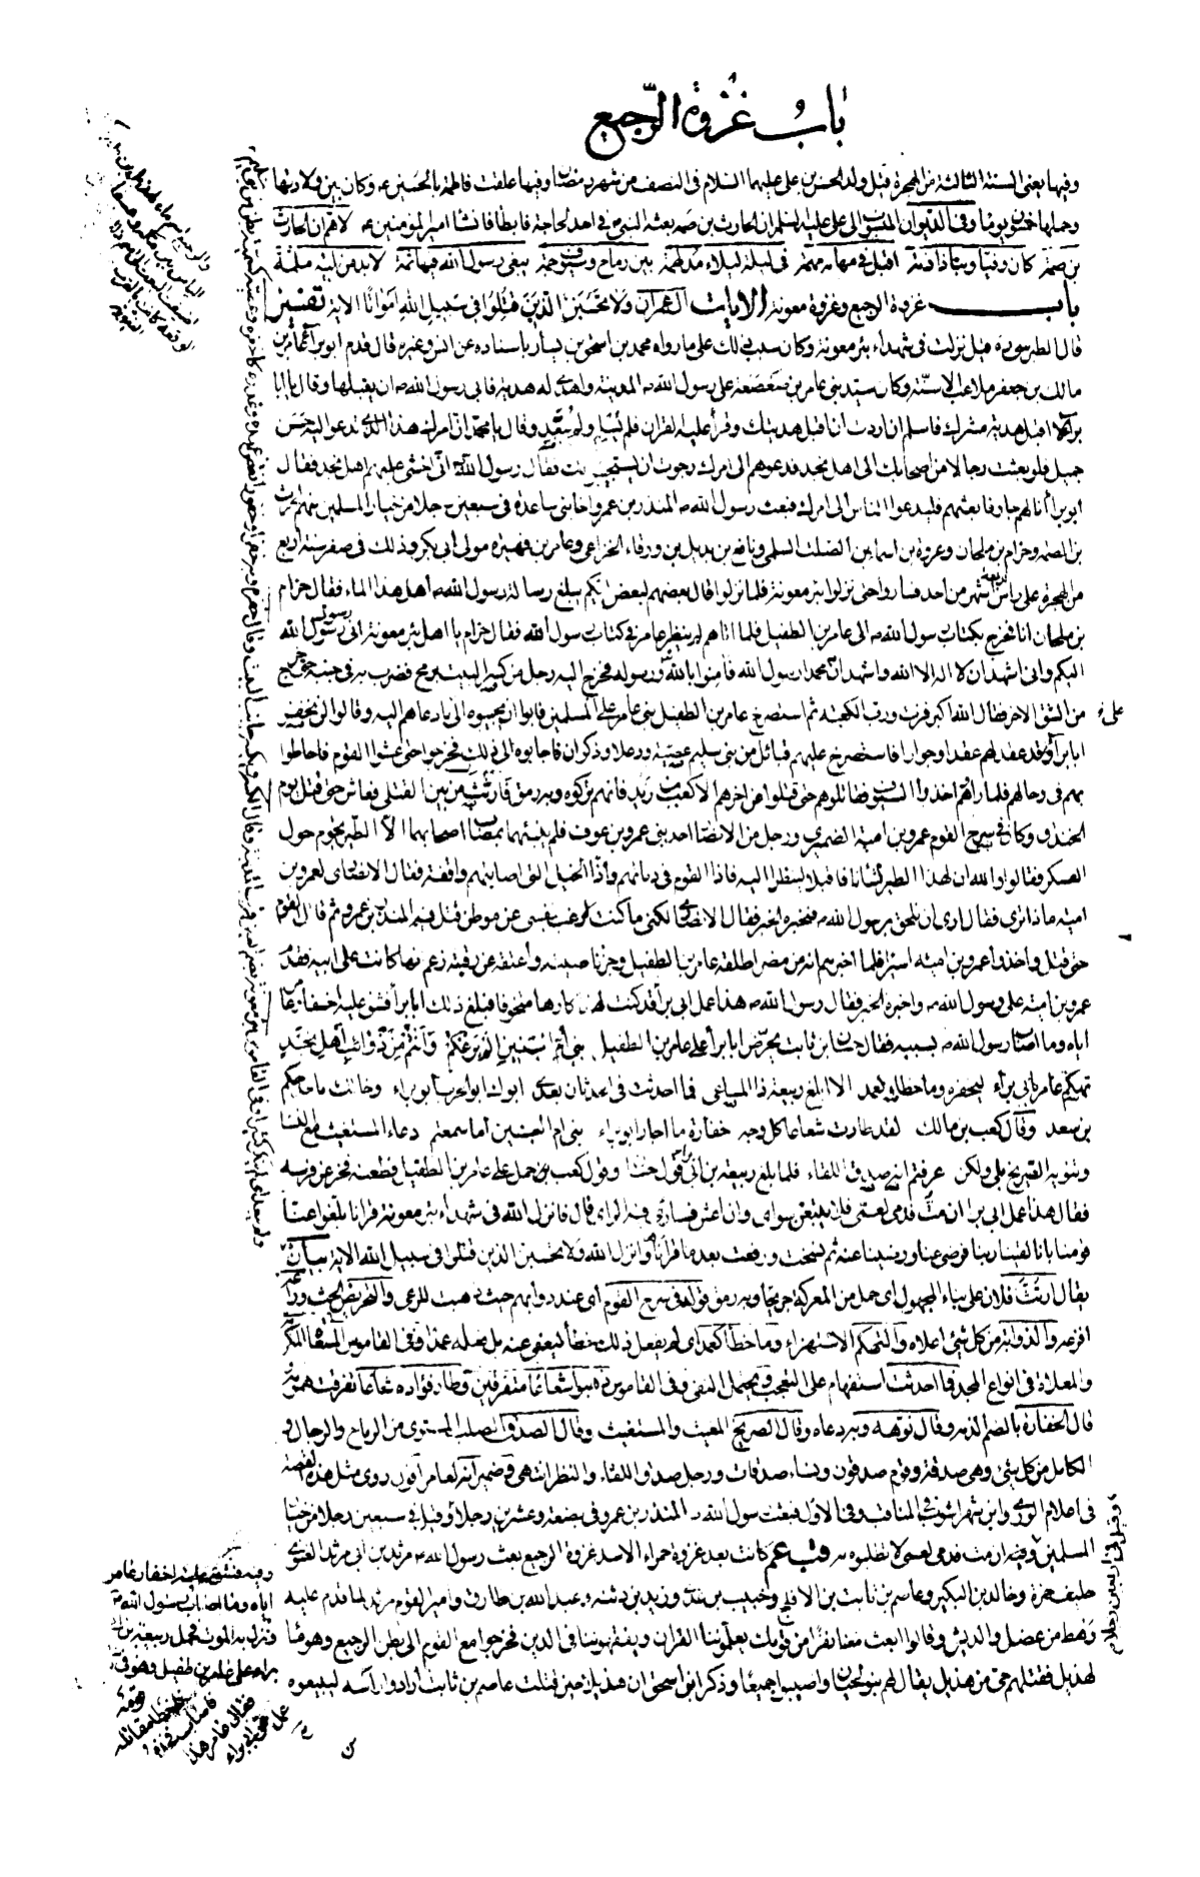 باب غزوة الرّجيع
وفيها يعنى السنة الثالثة من الهجرة قبل ولد الحسن بن على عليهما السلام فى النصف من شهر رمضان وفيها علقت فاطمة بالحسين ع وكان بين ولادتها
وحملها خمسون يوما وفى الديوان المنسوب الى على عليه السلم ان الحارث بن صمة بعثه النبى ص فى احد لحاجة فابطأ فانشا امير المؤمنين ع لاهم ان الحارث
بن صمة كان وفيّا وبنا ذا ذمة اقبل فى مهامه مهمة فى ليلة ليلاء مدلهمة بين رماح وسيوف جمة يبغى رسول الله فيها ثمة لابد من بلية ملمة
باب غزوة الرجيع وغزوة معونة الايات ال عمران ولا تحسبنّ الّذين قتلوا فى سبيل الله امواتًا الاية تفسير
قال الطبرسى ره قيل نزلت فى شهداء بئر معونة وكان سبب ذلك على ما رواه محمد بن اسحق بن يسار باسناده عن انس وغيره قال قدم ابو براء عامر بن
مالك بن جعفر ملاعب الاسنّة وكان سيد بنى عامر بن صعصعة على رسول الله ص المدينة واهدى له هدية فابى رسول الله ص ان يقبلها وقال يا ابا
براء لا اقبل هدية مشرك فاسلم ان اردت ان اقبل هديتك وقرأ عليه القران فلم يسلم ولم يبعد وقال يا محمد ان امرك هذا الذى تدعو اليه حسن
جميل فلو بعثت رجالا من اصحابك الى اهل نجد فدعوهم الى امرك رجوت ان يستجيبوا لك فقال رسول الله ص انى اخشى عليهم اهل نجد فقال
ابو براء انا لهم جار فابعثهم فليدعوا الناس الى امرك فبعث رسول الله ص المنذر بن عمرو اخا بنى ساعدة فى سبعين رجلا من خيار المسلمين منهم الحرث
بن الصمة وحرام بن ملحان وعروة بن اسماء بن الصلت السلمى ونافع بن بديل بن ورقاء الخزاعى وعامر بن فهيرة مولى ابى بكر وذلك فى صفر سنة اربع
من الهجرة على راس اربعة اشهر من احد فساروا حتى نزلوا بئر معونة فلما نزلوا قال بعضهم لبعض ايكم يبلغ رسالة رسول الله ص اهل هذا الماء فقال حرام
بن ملحان انا فخرج بكتاب رسول الله ص الى عامر بن الطفيل فلما اتاهم لم ينظر عامر فى كتاب رسول الله فقال حرام يا اهل بئر معونة انى رسول رسول الله
اليكم وانى اشهد ان لا اله الا الله واشهد ان محمدا رسول الله فامنوا بالله ورسوله فخرج اليه رجل من كسر البيت برمح فضرب به فى جنبه حتى خرج
من الشق الاخر فقال الله اكبر فزت ورب الكعبة ثم استصرخ عامر بن الطفيل بنى عامر على المسلمين فابوا ان يجيبوه الى ما دعاهم اليه وقالوا لن نخفر
ابا براء وقد عقد لهم عقدا وجوارا فاستصرخ عليهم قبائل من بنى سليم عصية ورعلا وذكوان فاجابوه الى ذلك فخرجوا حتى غشوا القوم فاحاطوا
بهم فى رحالهم فلما راوهم اخذوا السيوف فقاتلوهم حتى قتلوا من اخرهم الا كعب بن زيد فانهم تركوه وبه رمق فارتث من بين القتلى فعاش حتى قتل يوم
الخندق وكان فى سرح القوم عمرو بن امية الضميرى ورجل من الانصار احد بنى عمرو بن عوف فلم ينبئهما بمصاب اصحابهما الا الطير يحوم حول
العسكر فقالوا والله ان لهذا الطير لشانا فاقبلا لينظرا اليه فاذا القوم فى دمائهم واذا الخيل التى اصابتهم واقفة فقال الانصارى لعمرو بن
امية ماذا ترى فقال ارى ان نلحق برسول الله ص فنخبره الخبر فقال الانصارى لكنى ما كنت لارغب بنفسى عن موطن قتل فيه المنذر بن عمرو ثم قاتل القوم
حتى قتل واخذوا عمرو بن امية اسيرا فلما اخبرهم انه من مضر اطلقه عامر بن الطفيل وجز ناصيته واعتقه عن رقبة زعم انها كانت على ابيه فقدم
عمرو بن امية على رسول الله ص واخبره الخبر فقال رسول الله ص هذا عمل ابى براء قد كنت لهذا كارها متخوفا فبلغ ذلك ابا براء فشق عليه اخفار عامر
اياه وما اصاب رسول الله ص بسببه فقال حسان بن ثابت يحرّض ابا براء على عامر بن الطفيل بنى امّ البنين الم يرعكم وانتم من ذوائب اهل نجد
تهكم عامر بابى براء ليخفره وما خطأ كعمد الا ابلغ ربيعة ذا المساعى فما احدثت فى الحدثان بعدى ابوك ابو الحروب ابو براء وخالك ماجد حكم
بن سعد وقال كعب بن مالك لقد طارت شعاعا كل وجه خفارة ما اجار ابو براء بنى ام البنين اما سمعتم دعاء المستغيث مع المساء
وتنويه الصريخ بلى ولكن عرفتم انه صدق اللقاء فلما بلغ ربيعة بن ابى براء قول حسان وقول كعب بن مالك حمل على عامر بن الطفيل وطعنه فخر عن فرسه
فقال هذا عمل ابى براء ان مت فدمى لعمى فلا يتبعن سواى وان اعش فسارى فيه الراى قال فانزل الله فى شهداء بئر معونة قرانا بلغوا عنا
قومنا بانا لقينا ربنا فرضى عنا ورضينا عنه ثم نسخت ورفعت بعد ما قراناها وانزل الله ولا تحسبن الذين قتلوا فى سبيل الله الاية بيان
يقال ارتثّ فلان على بناء المجهول اى حمل من المعركة جريحا وبه رمق قوله فى سرح القوم اى عند دوابهم حيث ذهبت للرعى والتحريض الحث وراعه
افزعه والذوابة من كل شئ اعلاه والتهكم الاستهزاء وما خطأ كعمد اى لم يفعل ذلك خطأ ليعفو عنه بل فعله عمدا وفى القاموس المسعاة المكرمة
والمعلاة فى انواع المجد فما احدثت استفهام على التعجب ويحتمل النفى وفى القاموس ذهبوا شعاعًا متفرقين وطار فؤاده شعاعا تفرقت همومه
قال الخفارة بالضم الذمة وقال نوّهه وبه دعاه وقال الصريخ المغيث والمستغيث وقال الصدق الصلب المستوى من الرماح والرجال و
الكامل من كل شئ وهى صدقة وقوم صدقون ونساء صدقات ورجل صدق اللقاء والنظر انتهى وضمير انه لعامر اقول روى مثل هذه القصة
فى اعلام الورى وابن شهراشوب فى المناقب وفى الاول فبعث رسول الله ص المنذر بن عمرو فى بضعة وعشرين رجلا وقيل فى سبعين رجلا من خيار
المسلمين وفيه ان مت فدمى لعمى لا تطلبوه به قب عم كانت بعد غزوة حمراء الاسد غزوة الرجيع بعث رسول الله ص مرثد بن ابى مرثد الغنوى
حليف حمزة وخالد بن البكير وعاصم بن ثابت بن الافلح وخبيب بن عدى وزيد بن دثنة وعبد الله بن طارق وامير القوم مرثد لما قدم عليه
رهط من عضل والديش وقالوا ابعث معنا نفرًا من قومك يعلموننا القران ويفقهوننا فى الدين فخرجوا مع القوم الى بطن الرجيع وهو ماء
لهذيل فقتلهم حى من هذيل يقال لهم بنو لحيان واصيبوا جميعًا وذكر ابن اسحق ان هذيلا حين قتلت عاصم بن ثابت ارادوا راسه ليبيعوه
على ؟
وقيل فى اربعين رجلا م
وفيه فشق عليه اخفار عامر
اياه وما اصاب رسول الله ص
ونزل به الموت فحمل ربيعة بن ابى
براء على عامر بن طفيل وهو فى